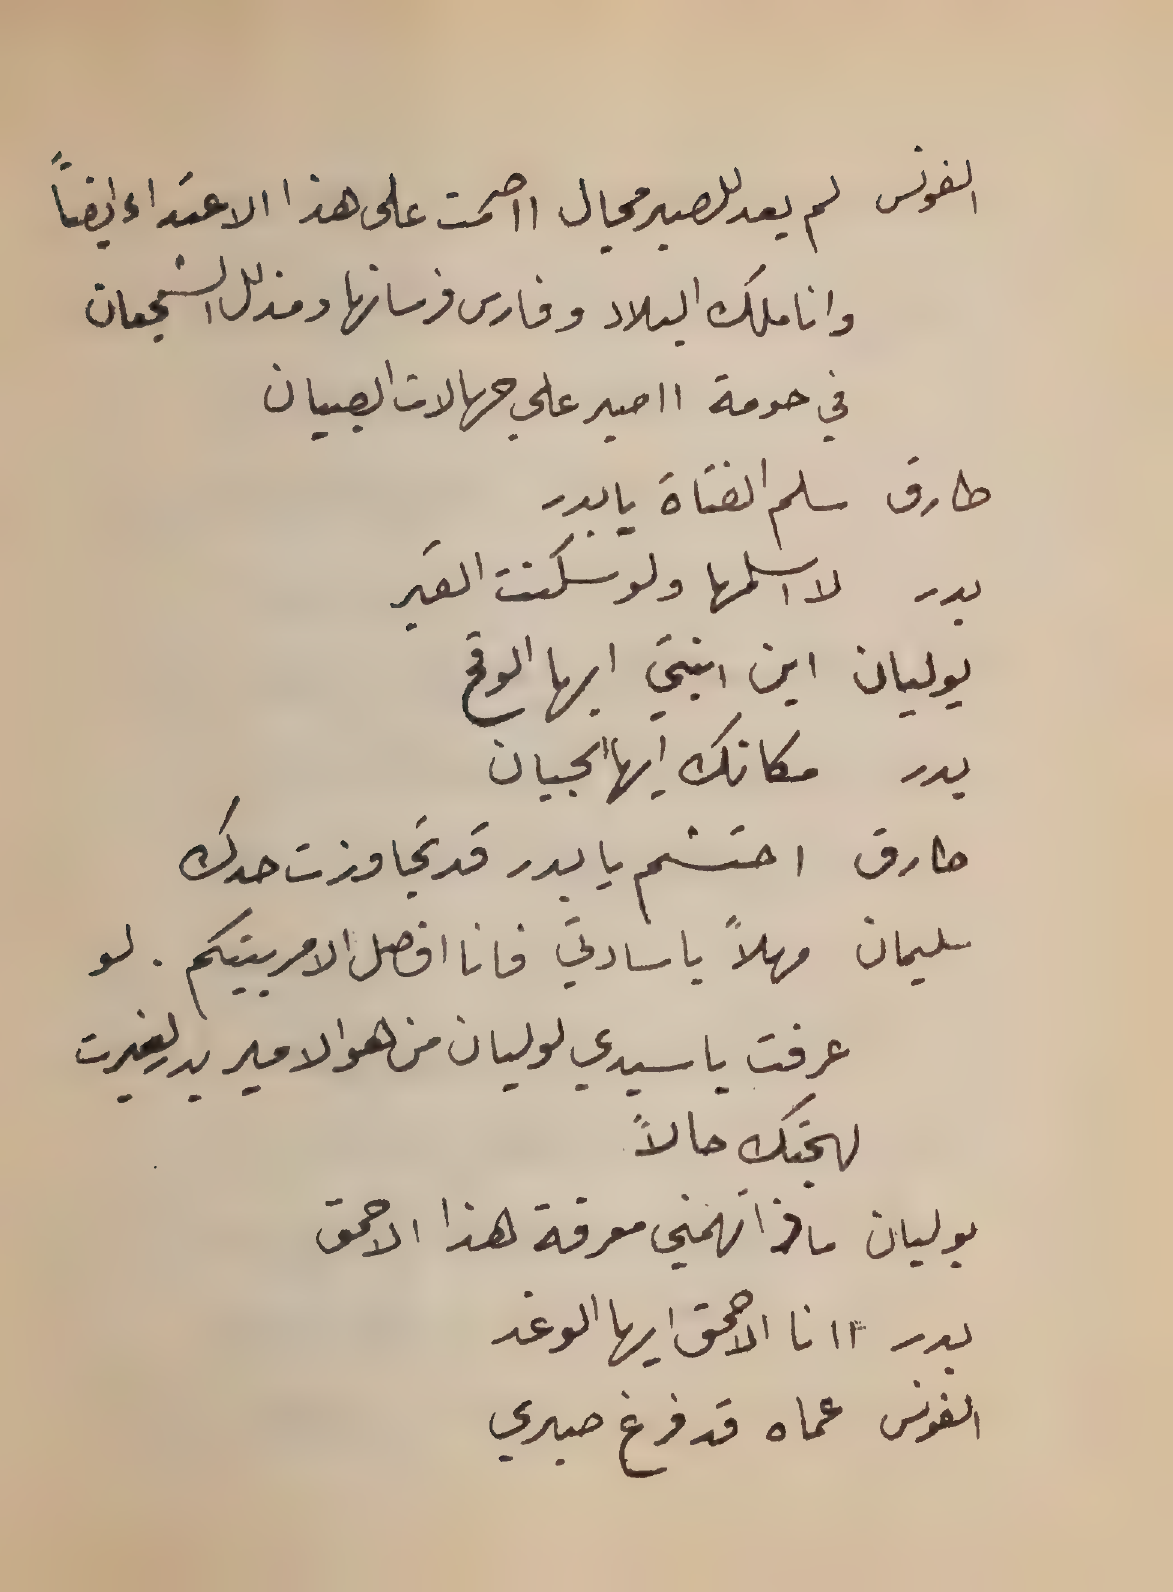 الفونس لم يعد للصبر مجال ااصمت على هذا الاعتداء ايضاً
وانا ملك البلاد وفارس فرسانها ومذلل الشجعان
في حومة ااصبر علي جهالات الصبيان
طارق سلم الفتاة يا بدر
بدر لا اسلمها ولو سكنت القبر
يوليان اين ابنتي ايها الوقح
بدر مكانك ايها الجبان
طارق احتشم يا بدر قد تجاوزت حدك
سليمان مهلاً يا سادتي فانا افصل الامر بينكم . لو
عرفت يا سيدي لوليان من هو الامير بدر لغيرت
لهجتك حالاً
يوليان ماذا تهمني معرفة هذا الاحمق
بدر اانا الاحمق ايها الوغد
الفونس عماه قد فرغ صبري